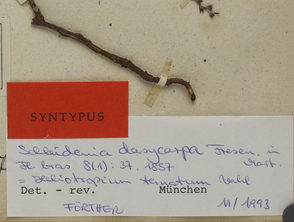 SYNTYPUS
Schleidenia dasycarpa Fresen. in
Fl. bras. 8(1): 37. 1857 Mart.
= Heliotropium ternatum Vahl
Det. - rev. München
FÖRTHER 11/1993